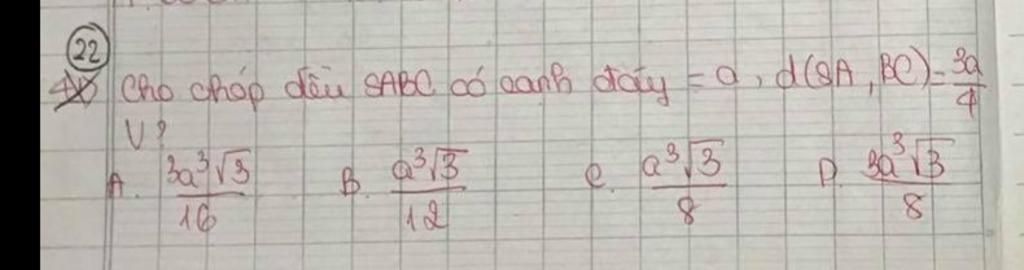 22
Cho chóp đều SABC có cạnh đáy = a, d(SA, BC) = 3a/4
V?
A. 3a³√3/16 B. a³√3/12 C. a³√3/8 D. 3a³√3/8